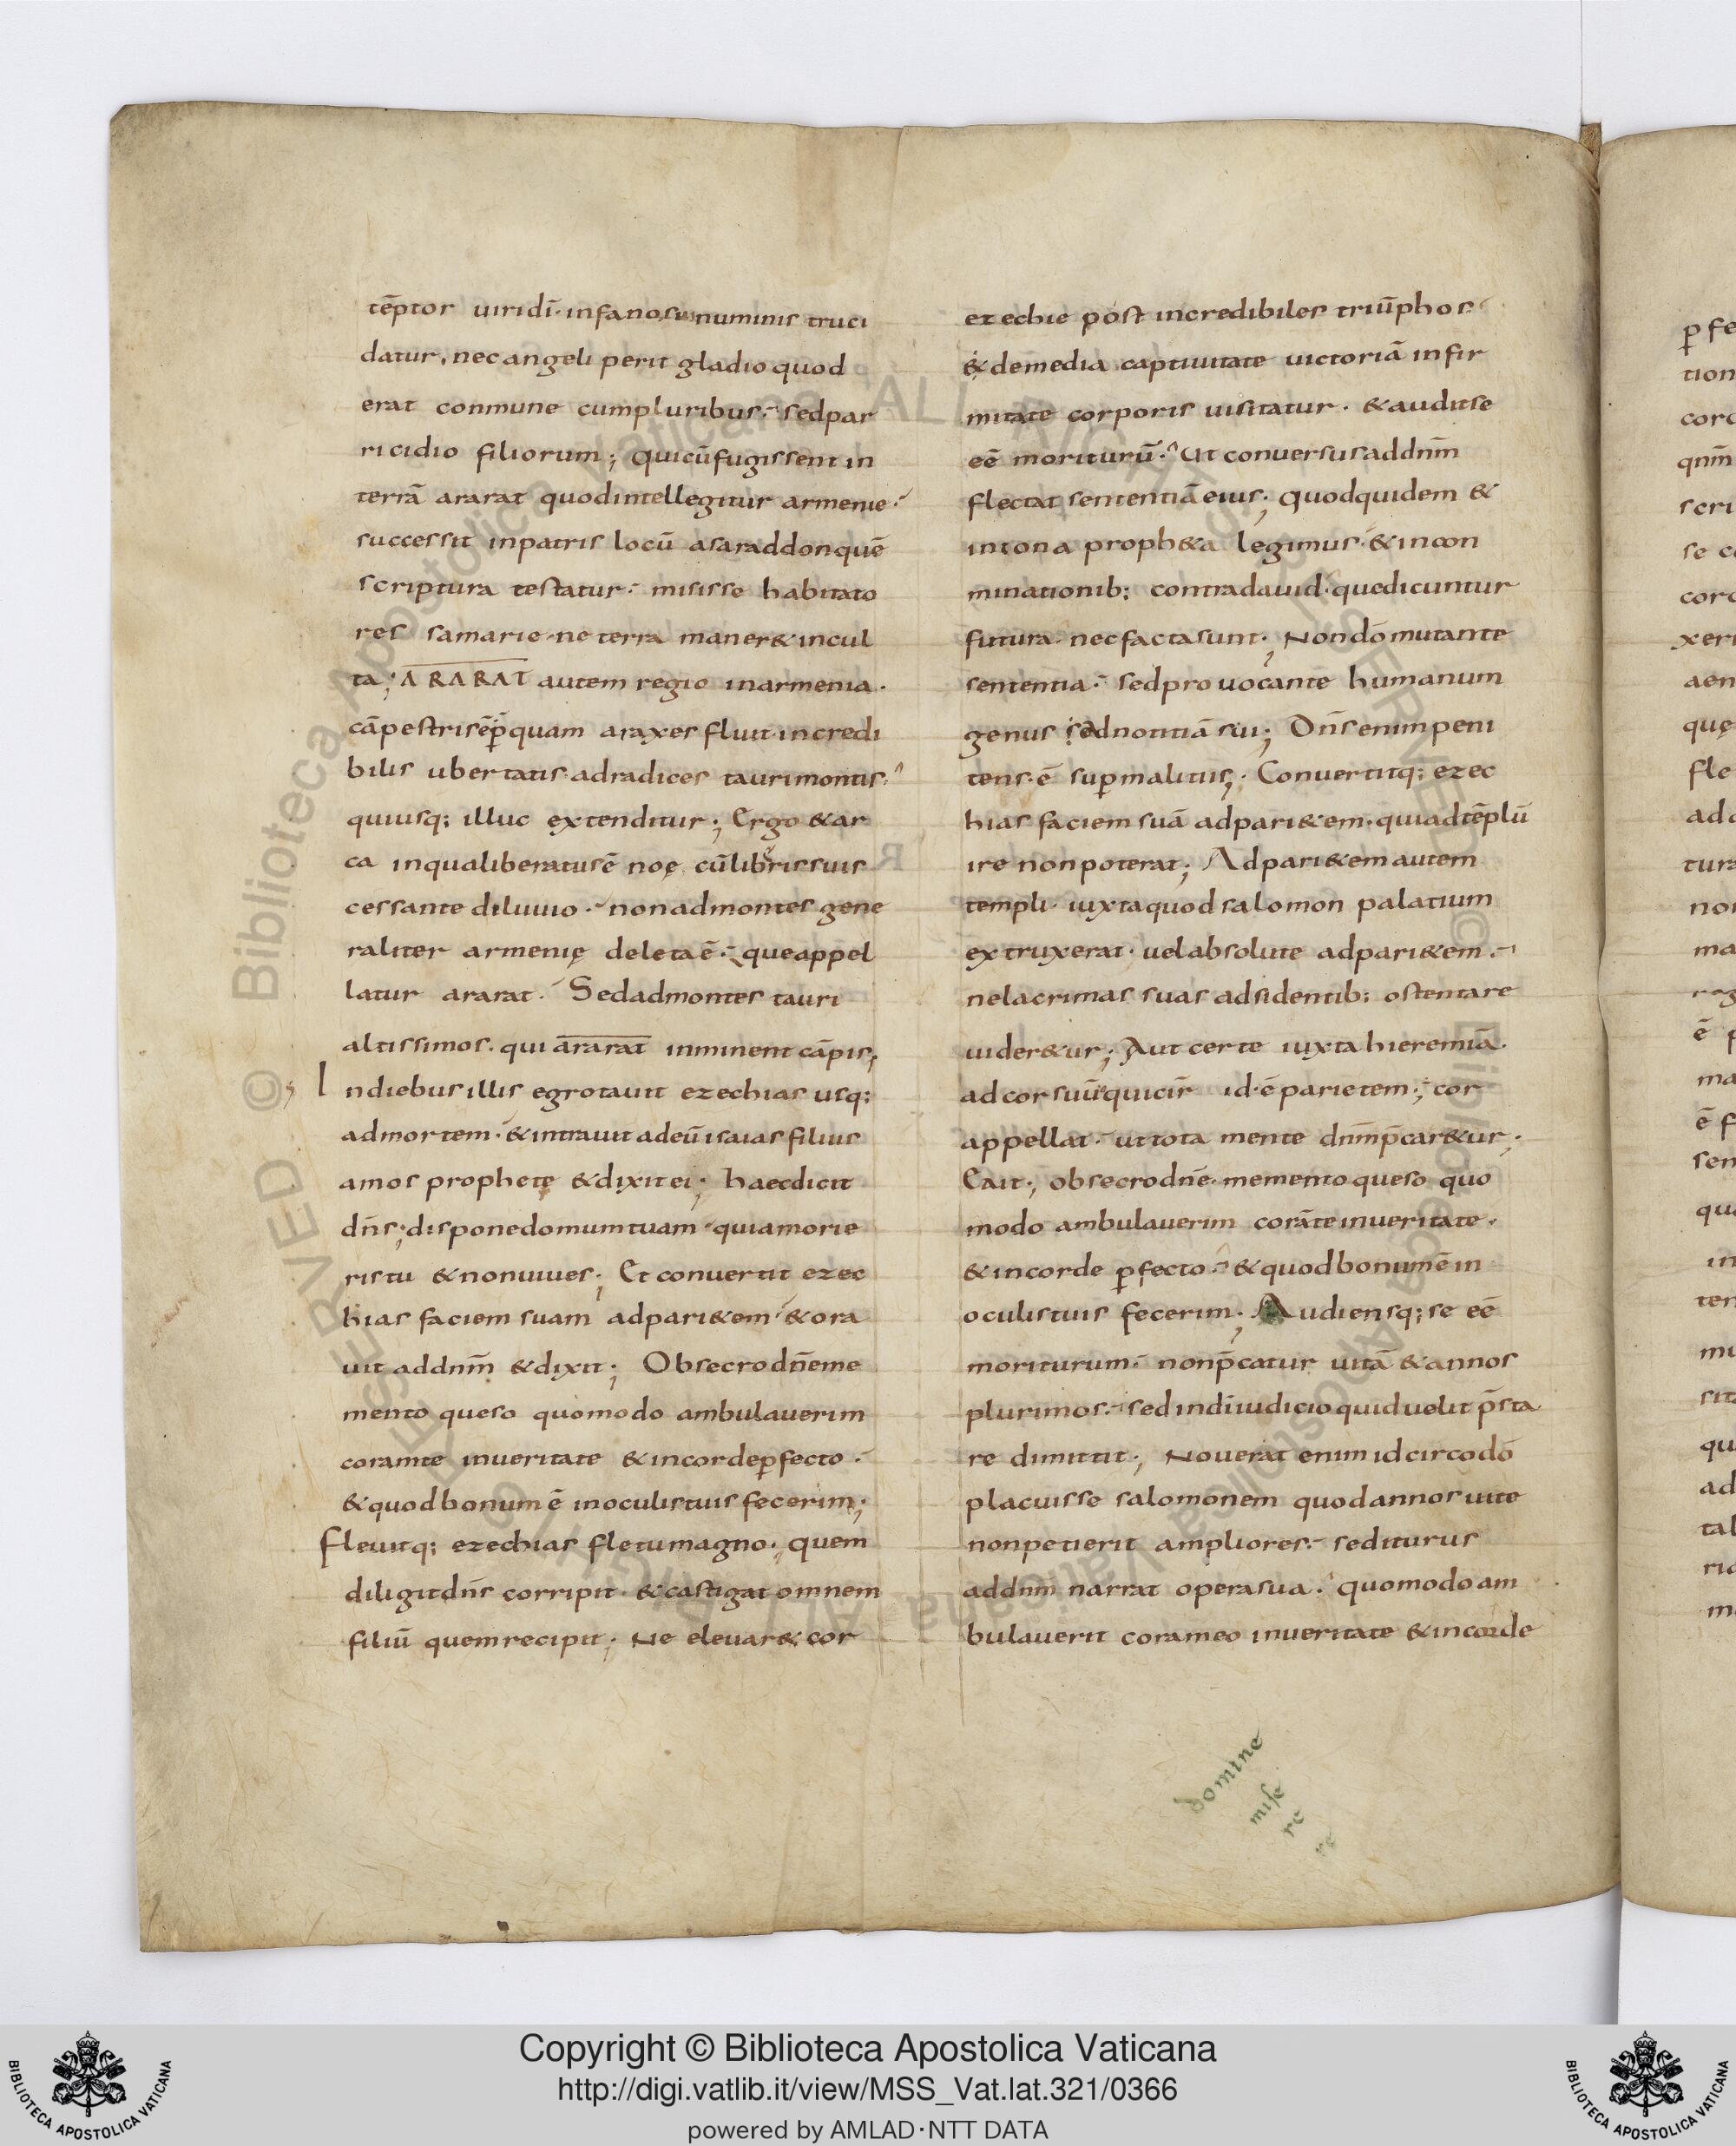 tēptor uiridī· infano sui numinis truci
datur, nec angeli perit gladio quod
erat conmune cumpluribus; sedpar
ricidio filiorum; quicūfugissent in
terrā ararat quodintellegitur armenie·
successit inpatris locū asaraddonquē
scriptura testatur· misisse habitato
res samarie· ne terra maner& incul
ta; ARARAT autem regio inarmenia·
cāpestrisē p quam araxes fluit· incredi
bilis ubertatis· adradices taurimontis·
quiusq; illuc extenditur; Ergo & ar
ca inqualiberatusē noę cūlibrissuis
cessante diluuio· nonadmontes gene
raliter armenię deletaē· queappel
latur ararat· Sedadmontes tauri
altissimos· qui ararat inminent cāpis;
Indiebusillis egrotauit ezechias usq;
admortem· & intrauit adeū isaias filius
amos prophete & dixit ei; haecdicit
dn̄s; disponedomumtuam· quiamorie
ristu & nonuiues; Et conuertit ezec
hias faciem suam adpari&em· & ora
uit addnm̄ & dixit; Obsecrodn̄eme
mento queso quomodo ambulauerim
coramte inueritate & incordepfecto·
& quodbonum ē inoculistuis fecerim;
Fleuitq; ezechias fletumagno· quem
diligitdn̄s corripit· & castigat omnem
filiū quemrecipit; Ne eleuar& cor
ezechie post incredibiles triūphos·
& demedia captiuitate uictoriā infir
mitate corporis uisitatur· & auditse
eē moriturū· Ut conuersusaddnm̄
flectat sententiā eius; quodquidem &
intona proph&a legimus· & incon
minationib; contradauid· quedicuntur
futura· nec factasunt; Nondō mutante
sententia· sedprouocante humanum
genus adnotitiā sui; Dn̄s enim peni
tens· ē sup malitiis; Conuertitq; ezec
hias faciem suā adpari&em· quiadtēplū
ire nonpoterat; Adpari&em autem
templi· iuxtaquod salomon palatium
extruxerat· uelabsolute adpari&em·
nelacrimas suas adsidentib; ostentare
uider&ur; Aut certe iuxta hieremiā·
ad cor suū quicir id· ē parietem; cor
appellat· ut tota mente dnm̄ p̄car&ur;
Eait; obsecrodn̄e· memento queso quo
modo ambulauerim corāte inueritate·
& incorde pfecto· & quodbonumē in
oculistuis fecerim; Audiensq; se eē
moriturum· nonp̄catur uitā & annos
plurimos· sed indīiudicio quid uelit p̄sta
re dimittit; Nouerat enim idcirco dō
placuisse salomonem quodannos uite
nonpetierit ampliores· sediturus
addnm̄ narrat operasua· quomodo am
bulauerit corameo inueritate & incorde
domine
mise
re
re
Copyright © Biblioteca Apostolica Vaticana
http://digi.vatlib.it/view/MSS_Vat.lat.321/0366
powered by AMLAD·NTT DATA
BIBLIOTECA APOSTOLICA VATICANA
BIBLIOTECA APOSTOLICA VATICANA